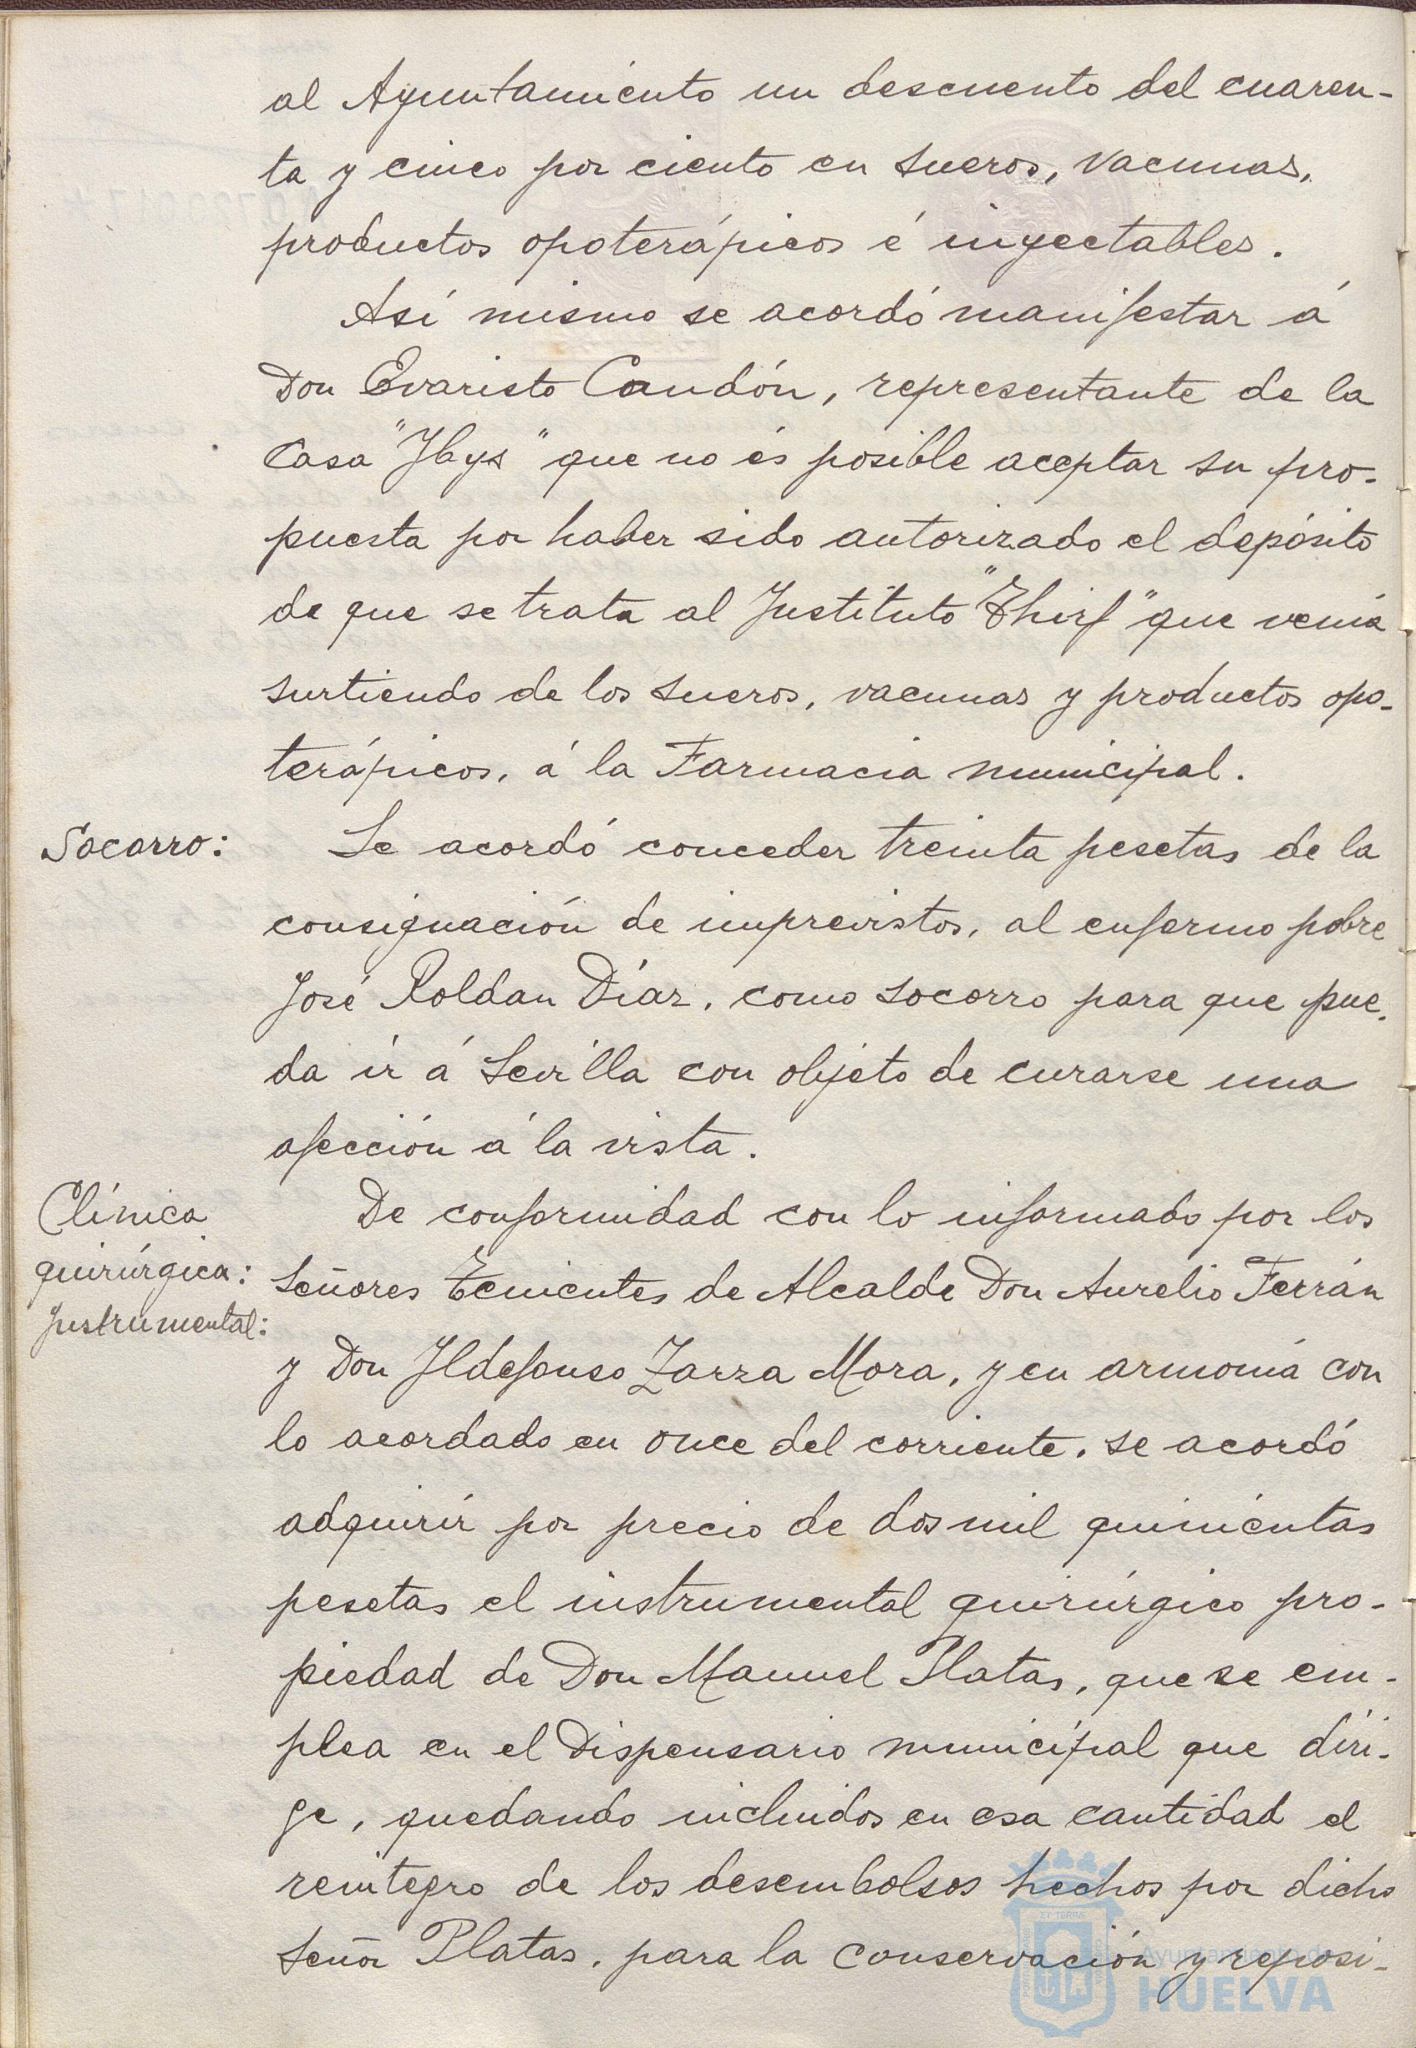 al Ayuntamiento un descuento del cuaren-
ta y cinco por ciento en sueros, vacunas,
productos opoterápicos é inyectables.
Así mismo se acordó manifestar á
Don Evaristo Candón, representante de la
Casa "Ibys" que no és posible aceptar su pro-
puesta por haber sido autorizado el depósito
de que se trata al Instituto "Thirf" que venía
surtiendo de los sueros, vacunas y productos opo-
terápicos, á la Farmacia municipal.
Socorro:
Se acordó conceder treinta pesetas de la
consignación de imprevistos, al enfermo pobre
José Roldan Díaz, como socorro para que pue-
da ir á Sevilla con objeto de curarse una
afección á la vista.
Clínica
quirúrgica:
Instrumental:
De conformidad con lo informado por los
Señores Tenientes de Alcalde Don Aurelio Terrán
y Don Ildefonso Zarza Mora, y en armonía con
lo acordado en once del corriente, se acordó
adquirir por precio de dos mil quinientas
pesetas el instrumental quirúrgico pro-
piedad de Don Manuel Platas, que se em-
plea en el Dispensario municipal que diri-
ge, quedando incluidos en esa cantidad el
reintegro de los desembolsos hechos por dicho
Señor Platas, para la conservación y reposi-
Ayuntamiento de
HUELVA